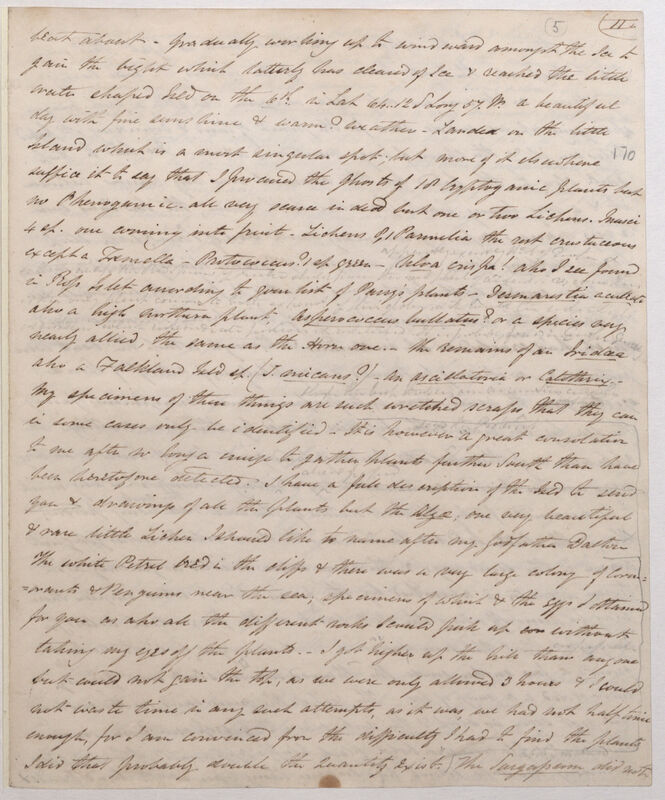 5
11
beat about - Gradually working up to windward amongst the Ice to
gain the bight which latterly has cleared of Ice & reached the little
crater shaped Isld on the 6th. in Lat 64.12 S Long 57. W. a beautiful
day with fine sunshine & warm? weather - Landed on the little
Island which is a most singular spot, but more of it elsewhere
170
suffice it to say that I procured the ghosts of 18 Cryptogamic plants but
no Phenogamic. all very scarce indeed but one or two Lichens. Musci
4 sp. one coming into fruit - Lichens 1 Parmelia the rest crustaceous
except a Tremella - Protococcus? 1 sp. green - Ulva crispa! also I see found
in Regs Islet according to your list of Parrys plants - Desmarestia aculeata
also a high northern plant, Asperococcus bullatus? or a species very
nearly allied, the same as the Horn one. - the remains of an Iridaea
also a Falkland Isld sp. (I. micans?) - an oscillatoria or Calothrix. -
My specimens of these things are such wretched scraps that they can
in some cases only be identified - It is however a great consolation
to me after so long a cruize to gather plants further South than have
been heretofore detected. I have a full description of the Isld to send
you & drawings of all the plants but the Algæ; one very beautiful
& rare little Lichen I should like to name after my Godfather Dawson
The white Petrel bred in the cliffs & there was a very large colony of Corm-
=orants & Penguins near the sea; specimens of which & the Eggs I obtained
for you as also all the different rocks I could pick up without
taking my eyes off the plants. - I got higher up the hill than any one
but could not gain the top, as we were only allowed 3 hours & I could
not waste time in any such attempts, as it was, we had not half time
enough, for I am convinced from the difficulty I had to find the plants
I did that probably double the quantity exist. The Sargassum did not